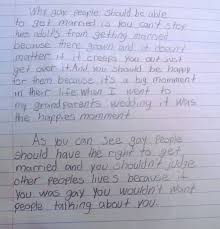 Why gay people should be able
to get married is you can't stop
two adults from getting married
because there grown and it doesn't
matter if it creeps you out just
get over it. And you should be happy
for them because its a big momment
in their life. When I went to
my grandparents wedding it was
the happies momment
As you can see gay people
should have the right to get
married and you shouldn't judge
other peoples lives because if
you was gay you wouldn't want
people talking about you.